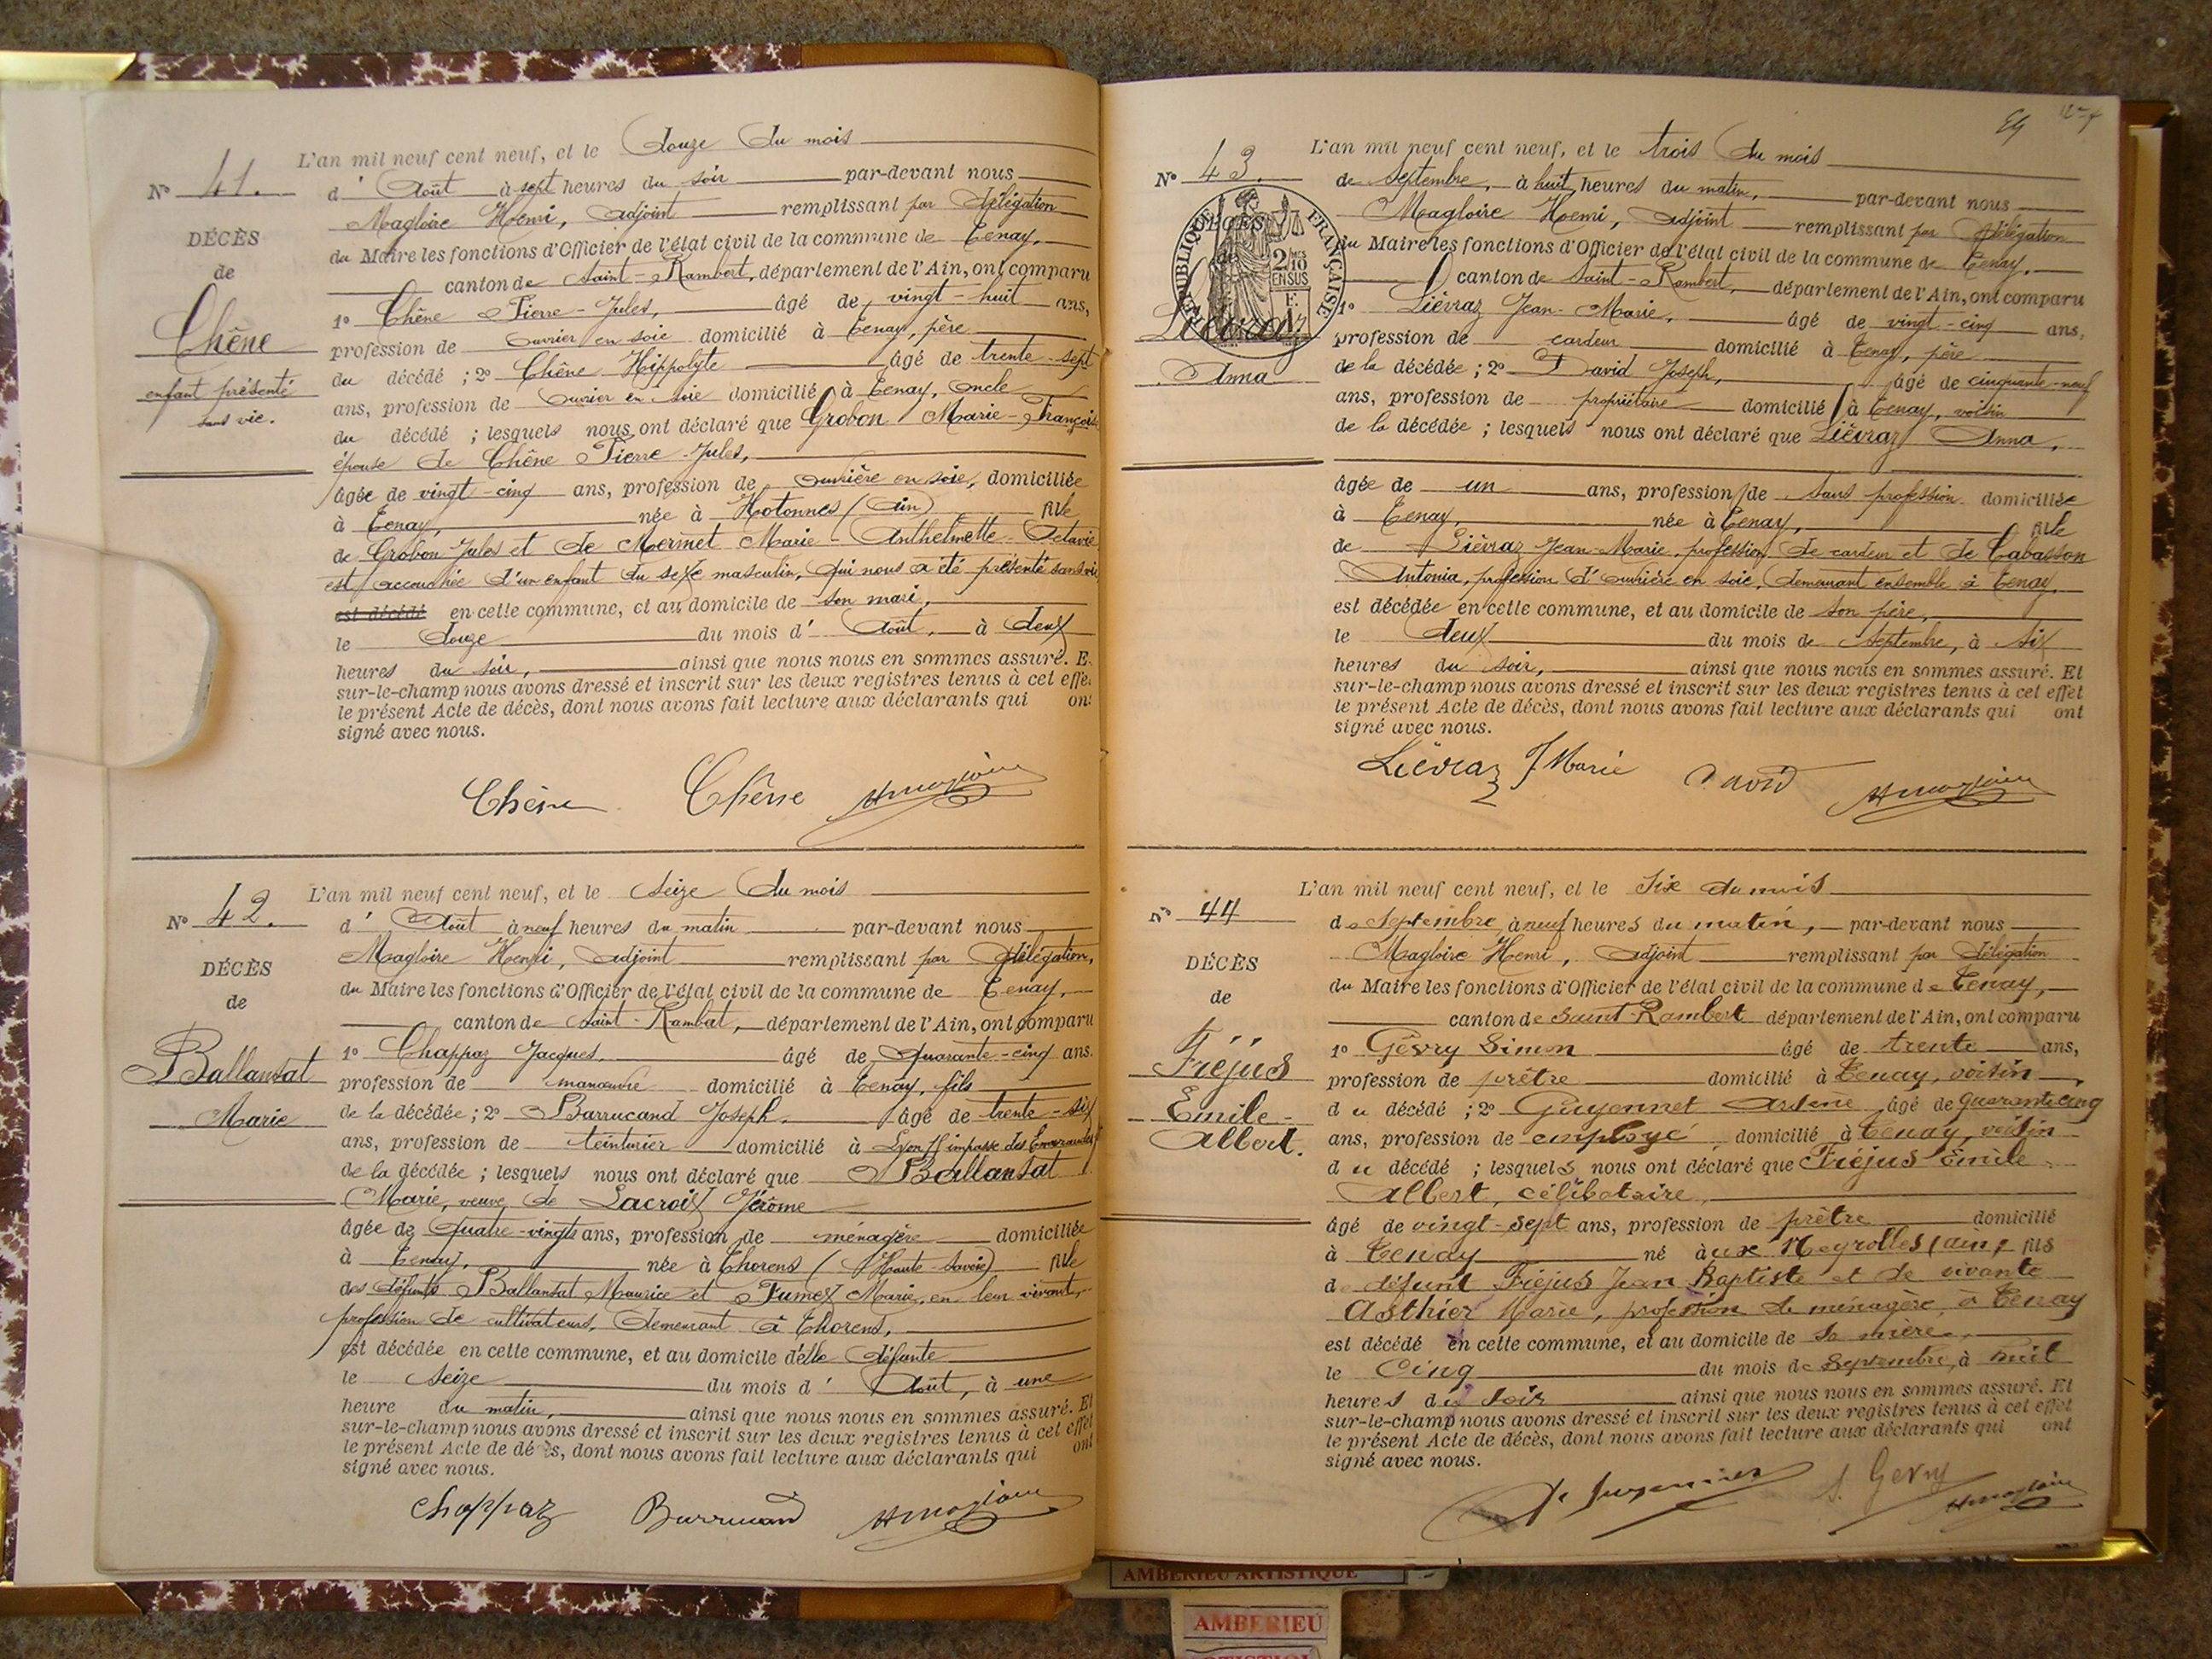 N° 41.
DÉCÈS
de
Chêne
enfant présenté
sans vie.
L'an mil neuf cent neuf, et le douze du mois
d' Août à sept heures du soir par-devant nous
Magloire Henri, adjoint remplissant par délégation
du Maire les fonctions d'Officier de l'état civil de la commune de Tenay,
canton de Saint-Rambert, département de l'Ain, ont comparu
1° Chêne Pierre-Jules, âgé de vingt-huit ans,
profession de ouvrier en soie domicilié à Tenay, père
du décédé ; 2° Chêne Hippolyte âgé de trente-sept
ans, profession de ouvrier en soie domicilié à Tenay, oncle
du décédé ; lesquels nous ont déclaré que Grobon Marie-Françoise
épouse de Chêne Pierre-Jules,
âgée de vingt-cinq ans, profession de ouvrière en soie, domiciliée
à Tenay, née à Hotonnes (Ain) fille
de Grobon Jules et de Mermet Marie-Anthelmette-Octavie
est accouchée d'un enfant du sexe masculin, qui nous a été présenté sans vie
est décédé en cette commune, et au domicile de son mari,
le douze du mois d' Août, à deux
heures du soir, ainsi que nous nous en sommes assuré. E
sur-le-champ nous avons dressé et inscrit sur les deux registres tenus à cet effe
le présent Acte de décès, dont nous avons fait lecture aux déclarants qui ont
signé avec nous.
Chêne Chêne HMagloire
N° 42.
DÉCÈS
de
Ballansat
Marie
L'an mil neuf cent neuf, et le seize du mois
d' Août à neuf heures du matin par-devant nous
Magloire Henri, adjoint remplissant par délégation,
du Maire les fonctions d'Officier de l'état civil de la commune de Tenay,
canton de Saint-Rambert, département de l'Ain, ont comparu
1° Chappaz Jacques, âgé de quarante-cinq ans.
profession de manœuvre domicilié à Tenay, fils
de la décédée ; 2° Barrucand Joseph, âgé de trente-six
ans, profession de teinturier domicilié à Lyon impasse des
de la décédée ; lesquels nous ont déclaré que Ballansat
Marie, veuve de Lacroix Jérôme
âgée de quatre-vingts ans, profession de ménagère domiciliée
à Tenay, née à Thorens (Haute-Savoie) fille
des défunts Ballansat Maurice et Fumex Marie, en leur vivant,
profession de cultivateurs, demeurant à Thorens,
est décédée en cette commune, et au domicile d'elle défunte
le seize du mois d' Août, à une
heure du matin, ainsi que nous nous en sommes assuré. Et
sur-le-champ nous avons dressé et inscrit sur les deux registres tenus à cet effet
le présent Acte de décès, dont nous avons fait lecture aux déclarants qui ont
signé avec nous.
Chappaz Barrucand HMagloire
N° 43.
DÉCÈS
de
RÉPUBLIQUE FRANÇAISE
2/10 EN SUS
Liévraz
Anna
L'an mil neuf cent neuf, et le trois du mois
de Septembre, à huit heures du matin, par-devant nous
Magloire Henri, adjoint remplissant par délégation
du Maire les fonctions d'Officier de l'état civil de la commune de Tenay,
canton de Saint-Rambert, département de l'Ain, ont comparu
1° Liévraz Jean-Marie, âgé de vingt-cinq ans,
profession de cardeur domicilié à Tenay, père
de la décédée ; 2° David Joseph, âgé de cinquante-neuf
ans, profession de propriétaire domicilié à Tenay, voisin
de la décédée ; lesquels nous ont déclaré que Liévraz Anna,
âgée de un ans, profession de sans profession domiciliée
à Tenay, née à Tenay, fille
de Liévraz Jean-Marie, profession de cardeur et de Cabasson
Antonia, profession d'ouvrière en soie, demeurant ensemble à Tenay,
est décédée en cette commune, et au domicile de son père,
le deux du mois de Septembre, à six
heures du soir, ainsi que nous nous en sommes assuré. Et
sur-le-champ nous avons dressé et inscrit sur les deux registres tenus à cet effet
le présent Acte de décès, dont nous avons fait lecture aux déclarants qui ont
signé avec nous.
Liévraz J Marie David HMagloire
N° 44
DÉCÈS
de
Fréjus
Emile-
Albert.
L'an mil neuf cent neuf, et le Six du mois
de Septembre à neuf heures du matin, par-devant nous
Magloire Henri, adjoint remplissant par délégation
du Maire les fonctions d'Officier de l'état civil de la commune de Tenay,
canton de Saint-Rambert département de l'Ain, ont comparu
1° Gévry Simon âgé de trente ans,
profession de prêtre domicilié à Tenay, voisin,
du décédé ; 2° Guyennet Arsène âgé de quarante cinq
ans, profession de employé domicilié à Tenay, voisin
du décédé ; lesquels nous ont déclaré que Fréjus Emile
Albert, célibataire,
âgé de vingt-sept ans, profession de prêtre domicilié
à Tenay né à aux Neyrolles (ain) fils
de défunt Fréjus Jean Baptiste et de vivante
Asthier Marie, profession de ménagère, à Tenay
est décédé en cette commune, et au domicile de sa mère,
le Cinq du mois de Septembre, à huit
heures du soir ainsi que nous nous en sommes assuré. Et
sur-le-champ nous avons dressé et inscrit sur les deux registres tenus à cet effet
le présent Acte de décès, dont nous avons fait lecture aux déclarants qui ont
signé avec nous.
S. Gevry HMagloire
AMBERIEU ARTISTIQUE
AMBERIEU